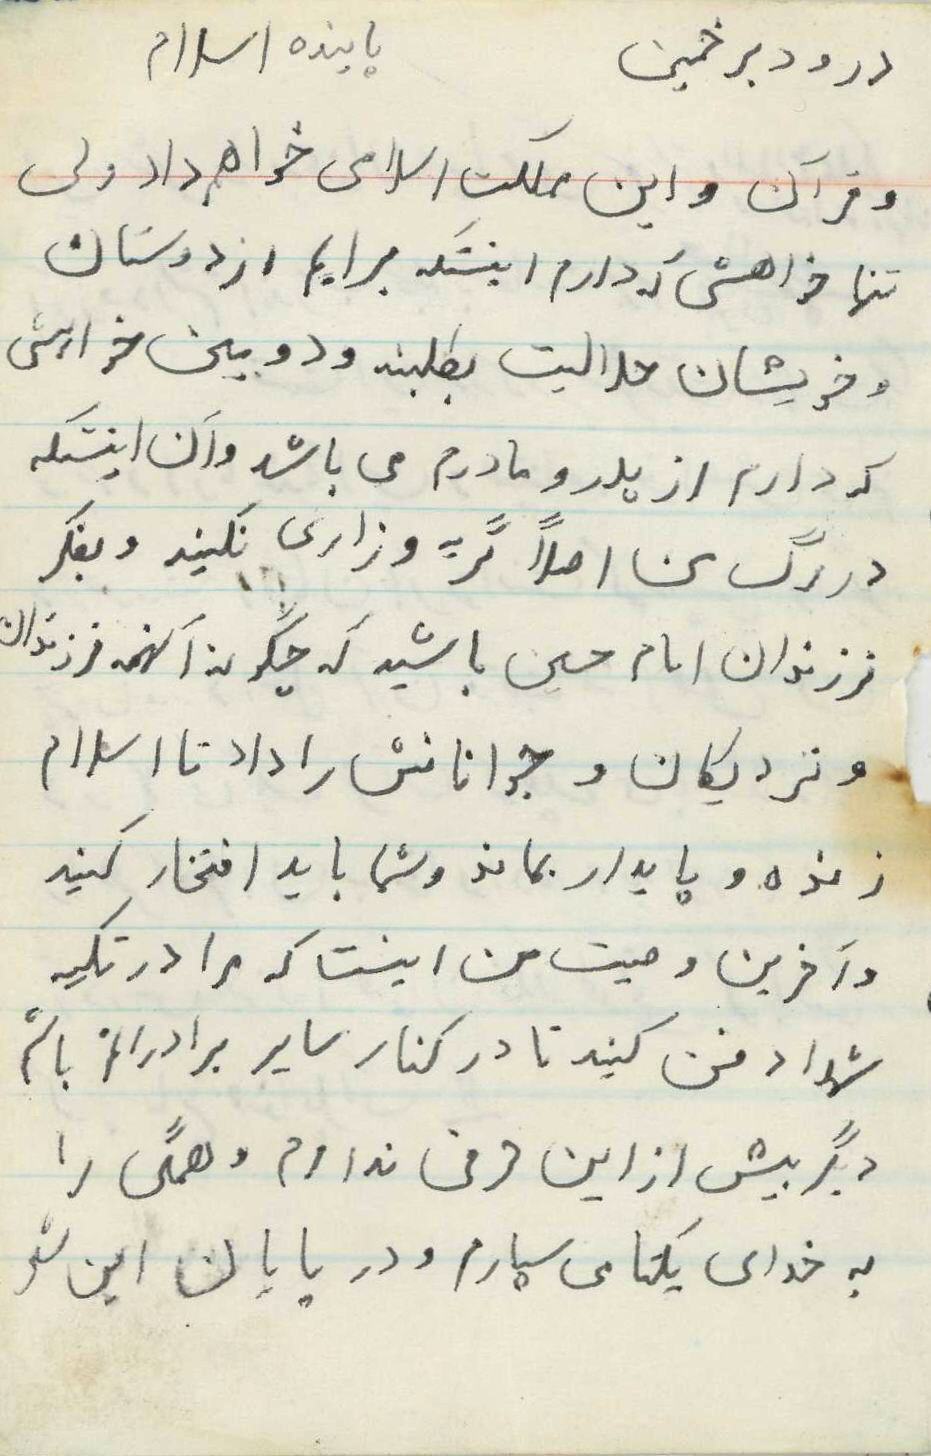 درود بر خمینی پاینده اسلام
و قرآن و این مملکت اسلامی خواهم داد ولی
تنها خواهشی که دارم اینستکه برایم از دوستان
و خویشان حلالیت بطلبند و دومین خواهشی
که دارم از پدر و مادرم می باشد و آن اینستکه
در مرگ من اصلاً گریه و زاری نکنید و بفکر
فرزندان امام حسین باشید که چگونه آنهمه فرزندان
و نزدیکان و جوانانش را داد تا اسلام
زنده و پایدار بماند و شما باید افتخار کنید
و آخرین وصیت من اینست که مرا در تکیه
شهدا دفن کنید تا در کنار سایر برادرانم باشم
دیگر بیش از این حرفی ندارم و همگی را
به خدای یکتا می سپارم و در پایان این